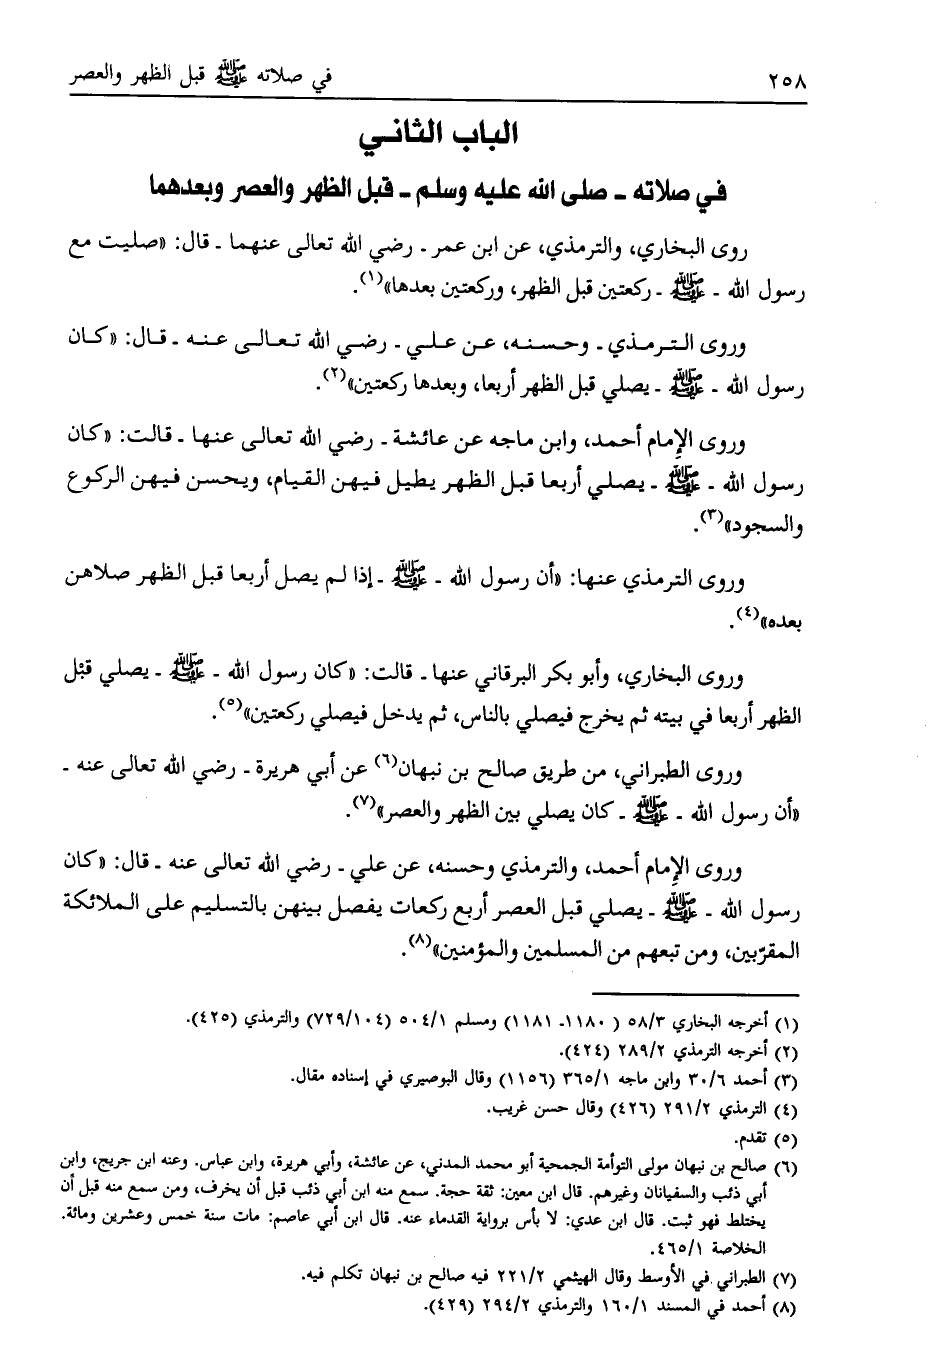 ٢٥٨ في صلاته ﷺ قبل الظهر والعصر
الباب الثاني
في صلاته ـ صلى الله عليه وسلم ـ قبل الظهر والعصر وبعدهما
روى البخاري، والترمذي، عن ابن عمر ـ رضي الله تعالى عنهما ـ قال: «صليت مع
رسول الله ـ ﷺ ـ ركعتين قبل الظهر، وركعتين بعدها»(١).
وروى الترمذي ـ وحسنه، عن علي ـ رضي الله تعالى عنه ـ قال: «كان
رسول الله ـ ﷺ ـ يصلي قبل الظهر أربعا، وبعدها ركعتين»(٢).
وروى الإمام أحمد، وابن ماجه عن عائشة ـ رضي الله تعالى عنها ـ قالت: «كان
رسول الله ـ ﷺ ـ يصلي أربعا قبل الظهر يطيل فيهن القيام، ويحسن فيهن الركوع
والسجود»(٣).
وروى الترمذي عنها: «أن رسول الله ـ ﷺ ـ إذا لم يصل أربعا قبل الظهر صلاهن
بعده»(٤).
وروى البخاري، وأبو بكر البرقاني عنها ـ قالت: «كان رسول الله ـ ﷺ ـ يصلي قبْل
الظهر أربعا في بيته ثم يخرج فيصلي بالناس، ثم يدخل فيصلي ركعتين»(٥).
وروى الطبراني، من طريق صالح بن نبهان(٦) عن أبي هريرة ـ رضي الله تعالى عنه ـ
«أن رسول الله ـ ﷺ ـ كان يصلي بين الظهر والعصر»(٧).
وروى الإمام أحمد، والترمذي وحسنه، عن علي ـ رضي الله تعالى عنه ـ قال: «كان
رسول الله ـ ﷺ ـ يصلي قبل العصر أربع ركعات يفصل بينهن بالتسليم على الملائكة
المقرّبين، ومن تبعهم من المسلمين والمؤمنين»(٨).
(١) أخرجه البخاري ٥٨/٣ ( ١١٨٠ـ ١١٨١) ومسلم ٥٠٤/١ (٧٢٩/١٠٤) والترمذي (٤٢٥).
(٢) أخرجه الترمذي ٢٨٩/٢ (٤٢٤).
(٣) أحمد ٣٠/٦ وابن ماجه ٣٦٥/١ (١١٥٦) وقال البوصيري في إسناده مقال.
(٤) الترمذي ٢٩١/٢ (٤٢٦) وقال حسن غريب.
(٥) تقدم.
(٦) صالح بن نبهان مولى التوأمة الجمحية أبو محمد المدني، عن عائشة، وأبي هريرة، وابن عباس. وعنه ابن جريج، وابن
أبي ذئب والسفيانان وغيرهم. قال ابن معين: ثقة حجة. سمع منه ابن أبي ذئب قبل أن يخرف، ومن سمع منه قبل أن
يختلط فهو ثبت. قال ابن عدي: لا بأس برواية القدماء عنه. قال ابن أبي عاصم: مات سنة خمس وعشرين ومائة.
الخلاصة ٤٦٥/١.
(٧) الطبراني في الأوسط وقال الهيثمي ٢٢١/٢ فيه صالح بن نبهان تكلم فيه.
(٨) أحمد في المسند ١٦٠/١ والترمذي ٢٩٤/٢ (٤٢٩).